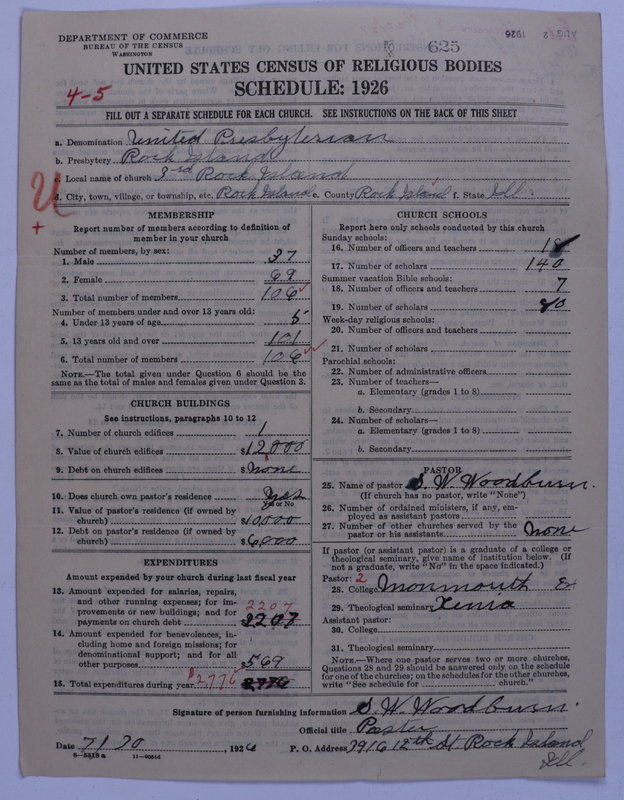 DEPARTMENT OF COMMERCE
BUREAU OF THE CENSUS
WASHINGTON
625
AUG 2 1926
UNITED STATES CENSUS OF RELIGIOUS BODIES
4-5
SCHEDULE: 1926
FILL OUT A SEPARATE SCHEDULE FOR EACH CHURCH. SEE INSTRUCTIONS ON THE BACK OF THIS SHEET
a. Denomination United Presbyterian
b. Presbytery Rock Island
c. Local name of church 3rd Rock Island
d. City, town, village, or township, etc. Rock Island e. County Rock Island f. State Ill.
U
+
MEMBERSHIP
Report number of members according to definition of
member in your church
Number of members, by sex:
1. Male 37
2. Female 69
3. Total number of members 106
Number of members under and over 13 years old:
4. Under 13 years of age 5
5. 13 years old and over 101
6. Total number of members 106
NOTE.—The total given under Question 6 should be
same as the total of males and females given under Question 3.
CHURCH BUILDINGS
See instructions, paragraphs 10 to 12
7. Number of church edifices 1
8. Value of church edifices $12,000
9. Debt on church edifices $None
10. Does church own pastor's residence Yes
Yes or No
11. Value of pastor's residence (if owned by
church) $10,000
12. Debt on pastor's residence (if owned by
church) $6,000
EXPENDITURES
Amount expended by your church during last fiscal year
13. Amount expended for salaries, repairs,
and other running expenses; for im-
provements or new buildings; and for 2207
payments on church debt 2207
14. Amount expended for benevolences, in-
cluding home and foreign missions; for
denominational support; and for all
other purposes $569
15. Total expenditures during year $2776 2776
CHURCH SCHOOLS
Report here only schools conducted by this church
Sunday schools:
16. Number of officers and teachers 18
17. Number of scholars 140
Summer vacation Bible schools:
18. Number of officers and teachers 7
19. Number of scholars 80
Week-day religious schools:
20. Number of officers and teachers
21. Number of scholars
Parochial schools:
22. Number of administrative officers
23. Number of teachers—
a. Elementary (grades 1 to 8)
b. Secondary
24. Number of scholars—
a. Elementary (grades 1 to 8)
b. Secondary
PASTOR
25. Name of pastor S. W. Woodburn.
(If church has no pastor, write "None")
26. Number of ordained ministers, if any, em-
ployed as assistant pastors
27. Number of other churches served by the
pastor or his assistants None
If pastor (or assistant pastor) is a graduate of a college or
theological seminary, give name of institution below. (If
not a graduate, write "No" in the space indicated.)
Pastor: 2
28. College Monmouth &
29. Theological seminary Xenia
Assistant pastor:
30. College
31. Theological seminary
NOTE.—Where one pastor serves two or more churches,
Questions 28 and 29 should be answered only on the schedule
for one of the churches; on the schedules for the other churches,
write "See schedule for church."
Signature of person furnishing information S. W. Woodburn.
Official title Pastor
Date 7/30, 1926 P. O. Address 2916 12th St Rock Island
Ill.